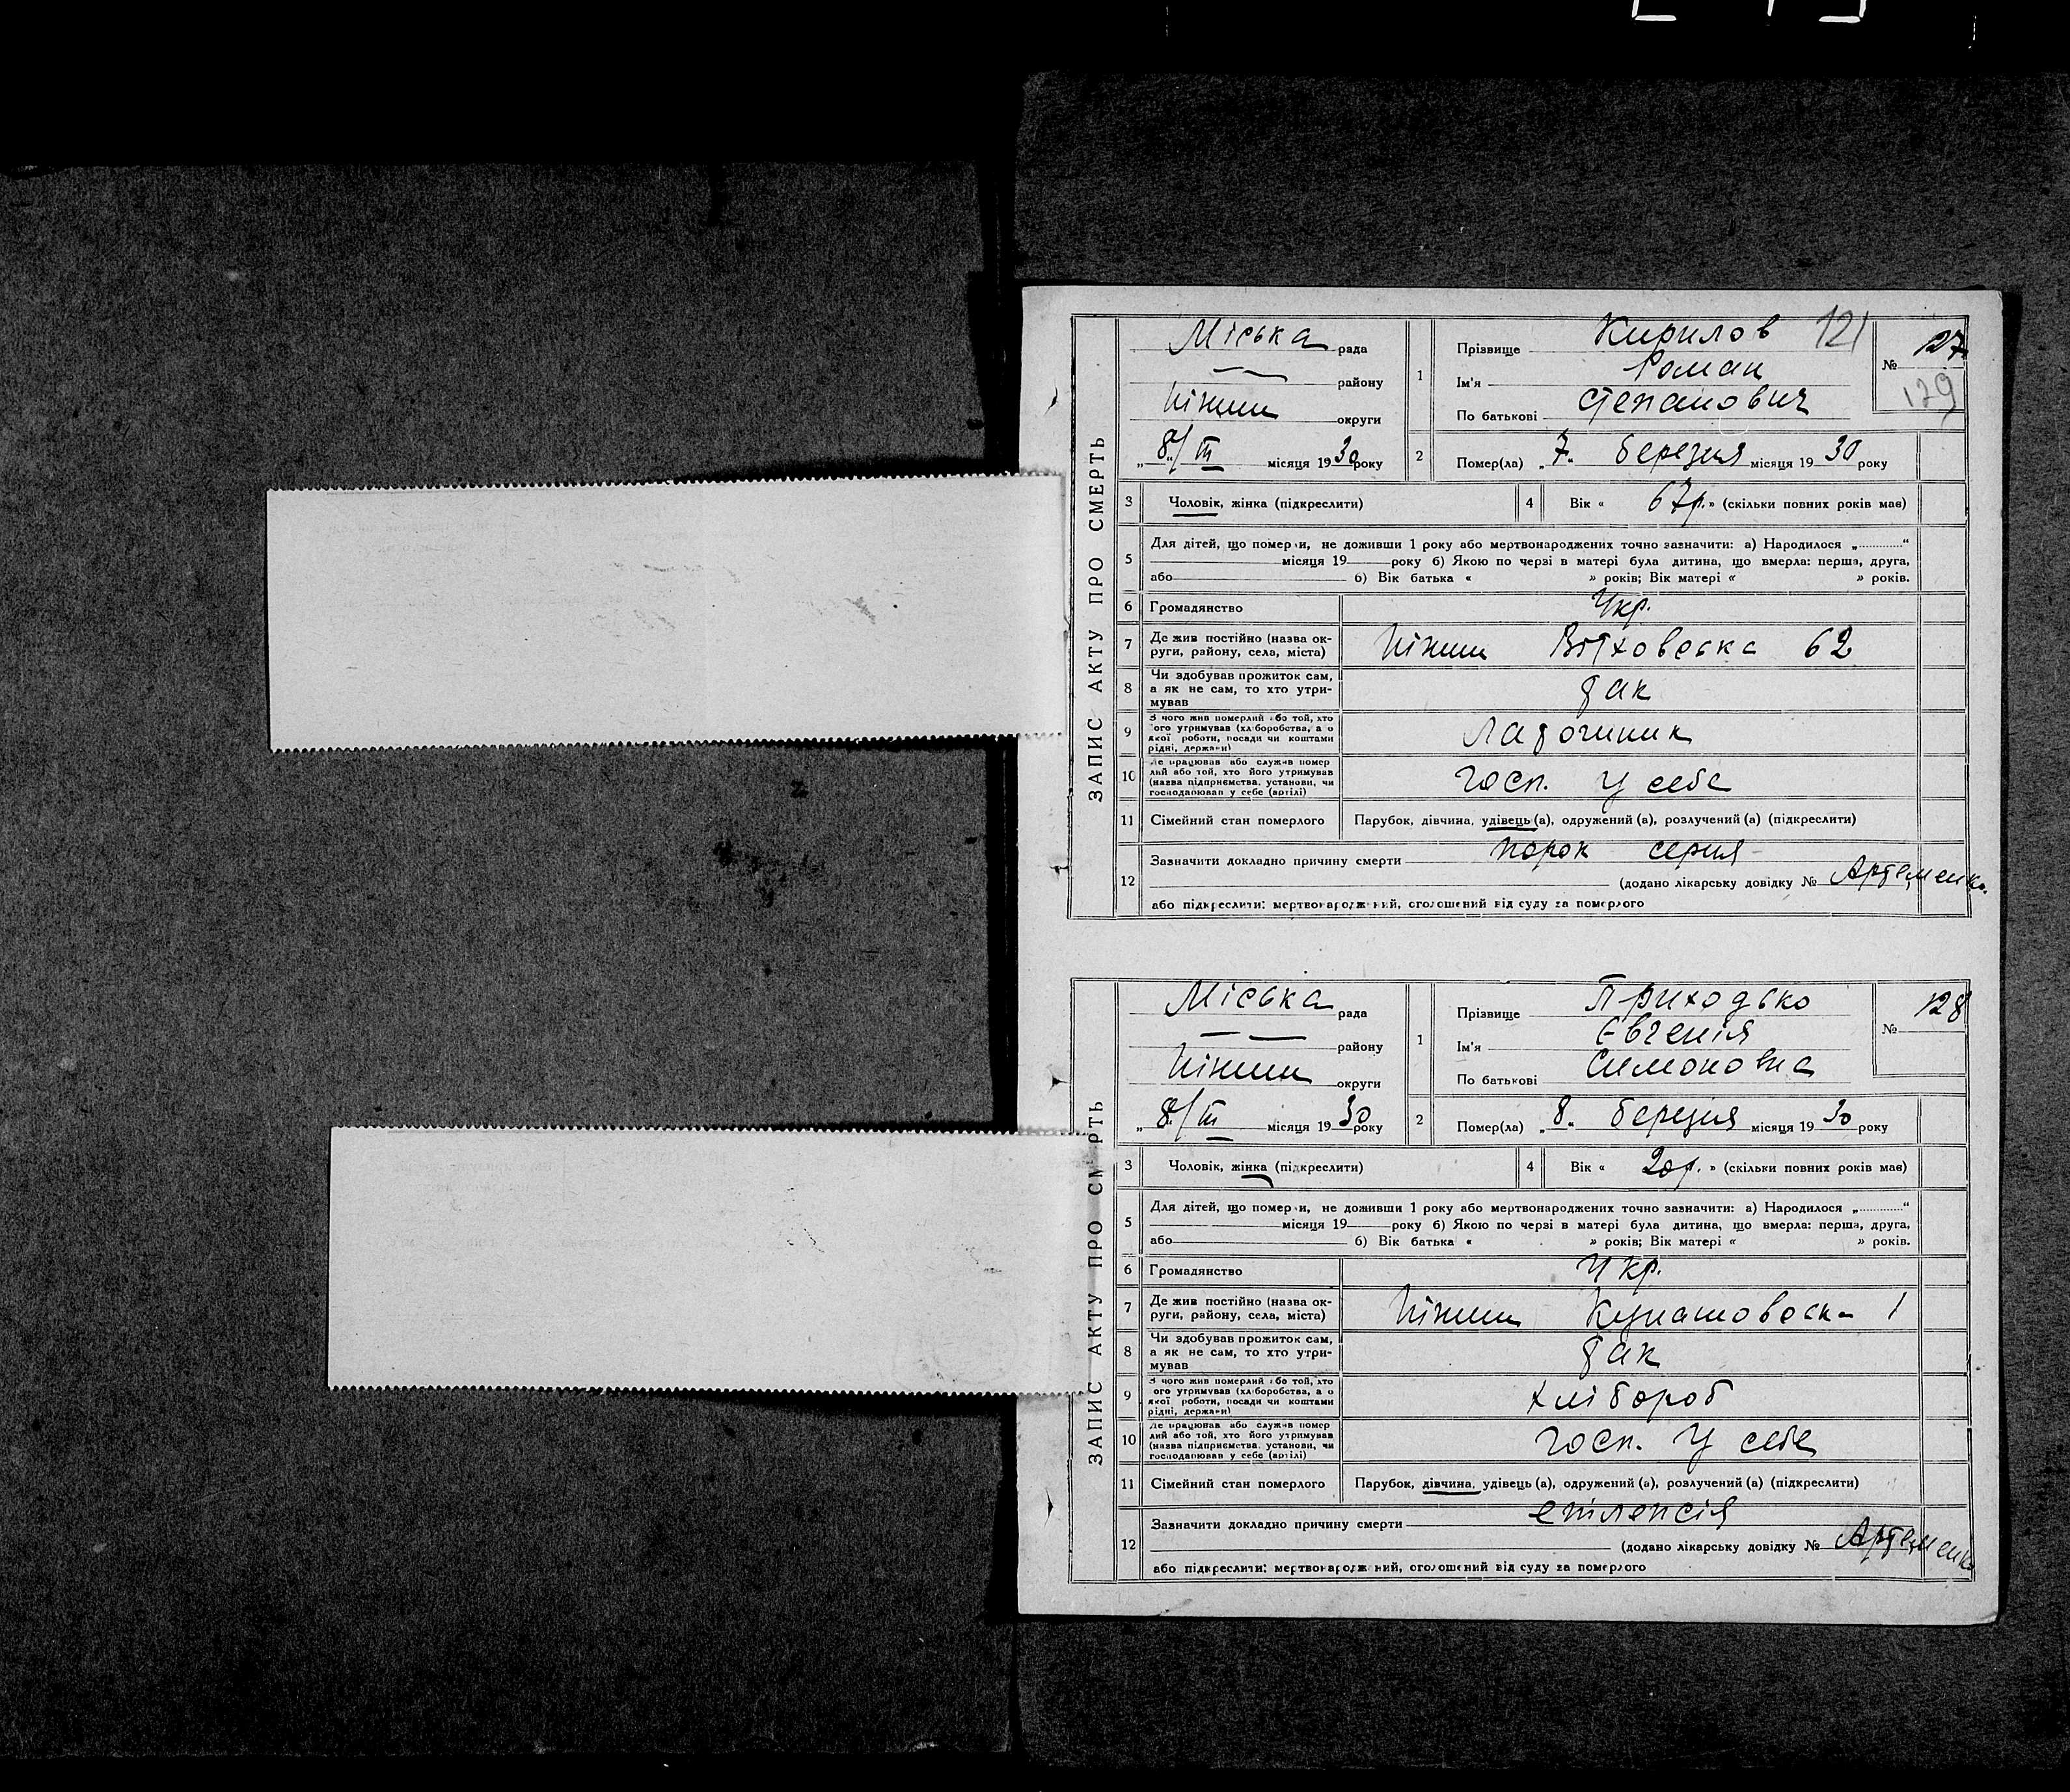 ЗАПИС АКТУ ПРО СМЕРТЬ
Міська рада
району
Ніжин округи
„8„/III місяця 1930року
1
Прізвище Кирилов 121
Ім'я Роман
По батькові Степанович
№ 127
129
2 Помер(ла) „7„ березня місяця 1930 року
3 Чоловік, жінка (підкреслити)
4 Вік « 67р.» (скільки повних років має)
5 Для дітей, що померли, не доживши 1 року або мертвонароджених точно зазначити: а) Народилося „............“
місяця 19 року б) Якою по черзі в матері була дитина, що вмерла: перша, друга,
або б) Вік батька « » років; Вік матері « » років.
6 Громадянство Укр.
7 Де жив постійно (назва ок-
руги, району, села, міста) Ніжин 62
8 Чи здобував прожиток сам,
а як не сам, то хто утри-
мував так
9 З чого жив померлий або той, хто
ого утримував (хліборобства, а о
якої роботи, посади чи коштами
рідні, держави)
10 Де працював або служив помер
лий або той, хто його утримував
(назва підприємства, установи, чи
господарював у себе (артілі) госп. у себе
11 Сімейний стан померлого Парубок, дівчина, удівець (а), одружений (а), розлучений (а) (підкреслити)
12 Зазначити докладно причину смерти порок серця
(додано лікарську довідку № Артеменко
або підкреслити: мертвонароджений, оголошений від суду за померлого
ЗАПИС АКТУ ПРО СМЕРТЬ
Міська рада
району
Ніжин округи
„8„/III місяця 1930 року
1
Прізвище Приходько
Ім'я Євгенія
По батькові Симоновна
№ 128
2 Помер(ла) „8„ березня місяця 1930 року
3 Чоловік, жінка (підкреслити)
4 Вік « 20р. » (скільки повних років має)
5 Для дітей, що померли, не доживши 1 року або мертвонароджених точно зазначити: а) Народилося „............“
місяця 19 року б) Якою по черзі в матері була дитина, що вмерла: перша, друга,
або б) Вік батька « » років; Вік матері « » років.
6 Громадянство Укр.
7 Де жив постійно (назва ок-
руги, району, села, міста) Ніжин Кунашовськ 1
8 Чи здобував прожиток сам,
а як не сам, то хто утри-
мував так
9 З чого жив померлий або той, хто
ого утримував (хліборобства, а о
якої роботи, посади чи коштами
рідні, держави) хлібороб
10 Де працював або служив помер
лий або той, хто його утримував
(назва підприємства, установи, чи
господарював у себе (артілі) госп. у себе
11 Сімейний стан померлого Парубок, дівчина, удівець (а), одружений (а), розлучений (а) (підкреслити)
12 Зазначити докладно причину смерти епілепсія
(додано лікарську довідку № Артеменко
або підкреслити: мертвонароджений, оголошений від суду за померлого